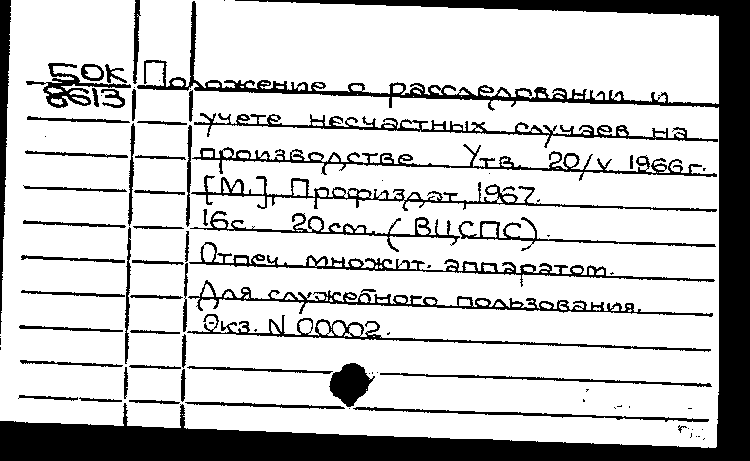 50К Положение о расследовании и
8613
учете несчастных случаев на
производстве. Утв. 20/V 1966г.
[М.], Профиздат, 1967.
16с. 20см. (ВЦСПС).
Отпеч. множит. аппаратом.
Для служебного пользования.
Экз. N 00002.